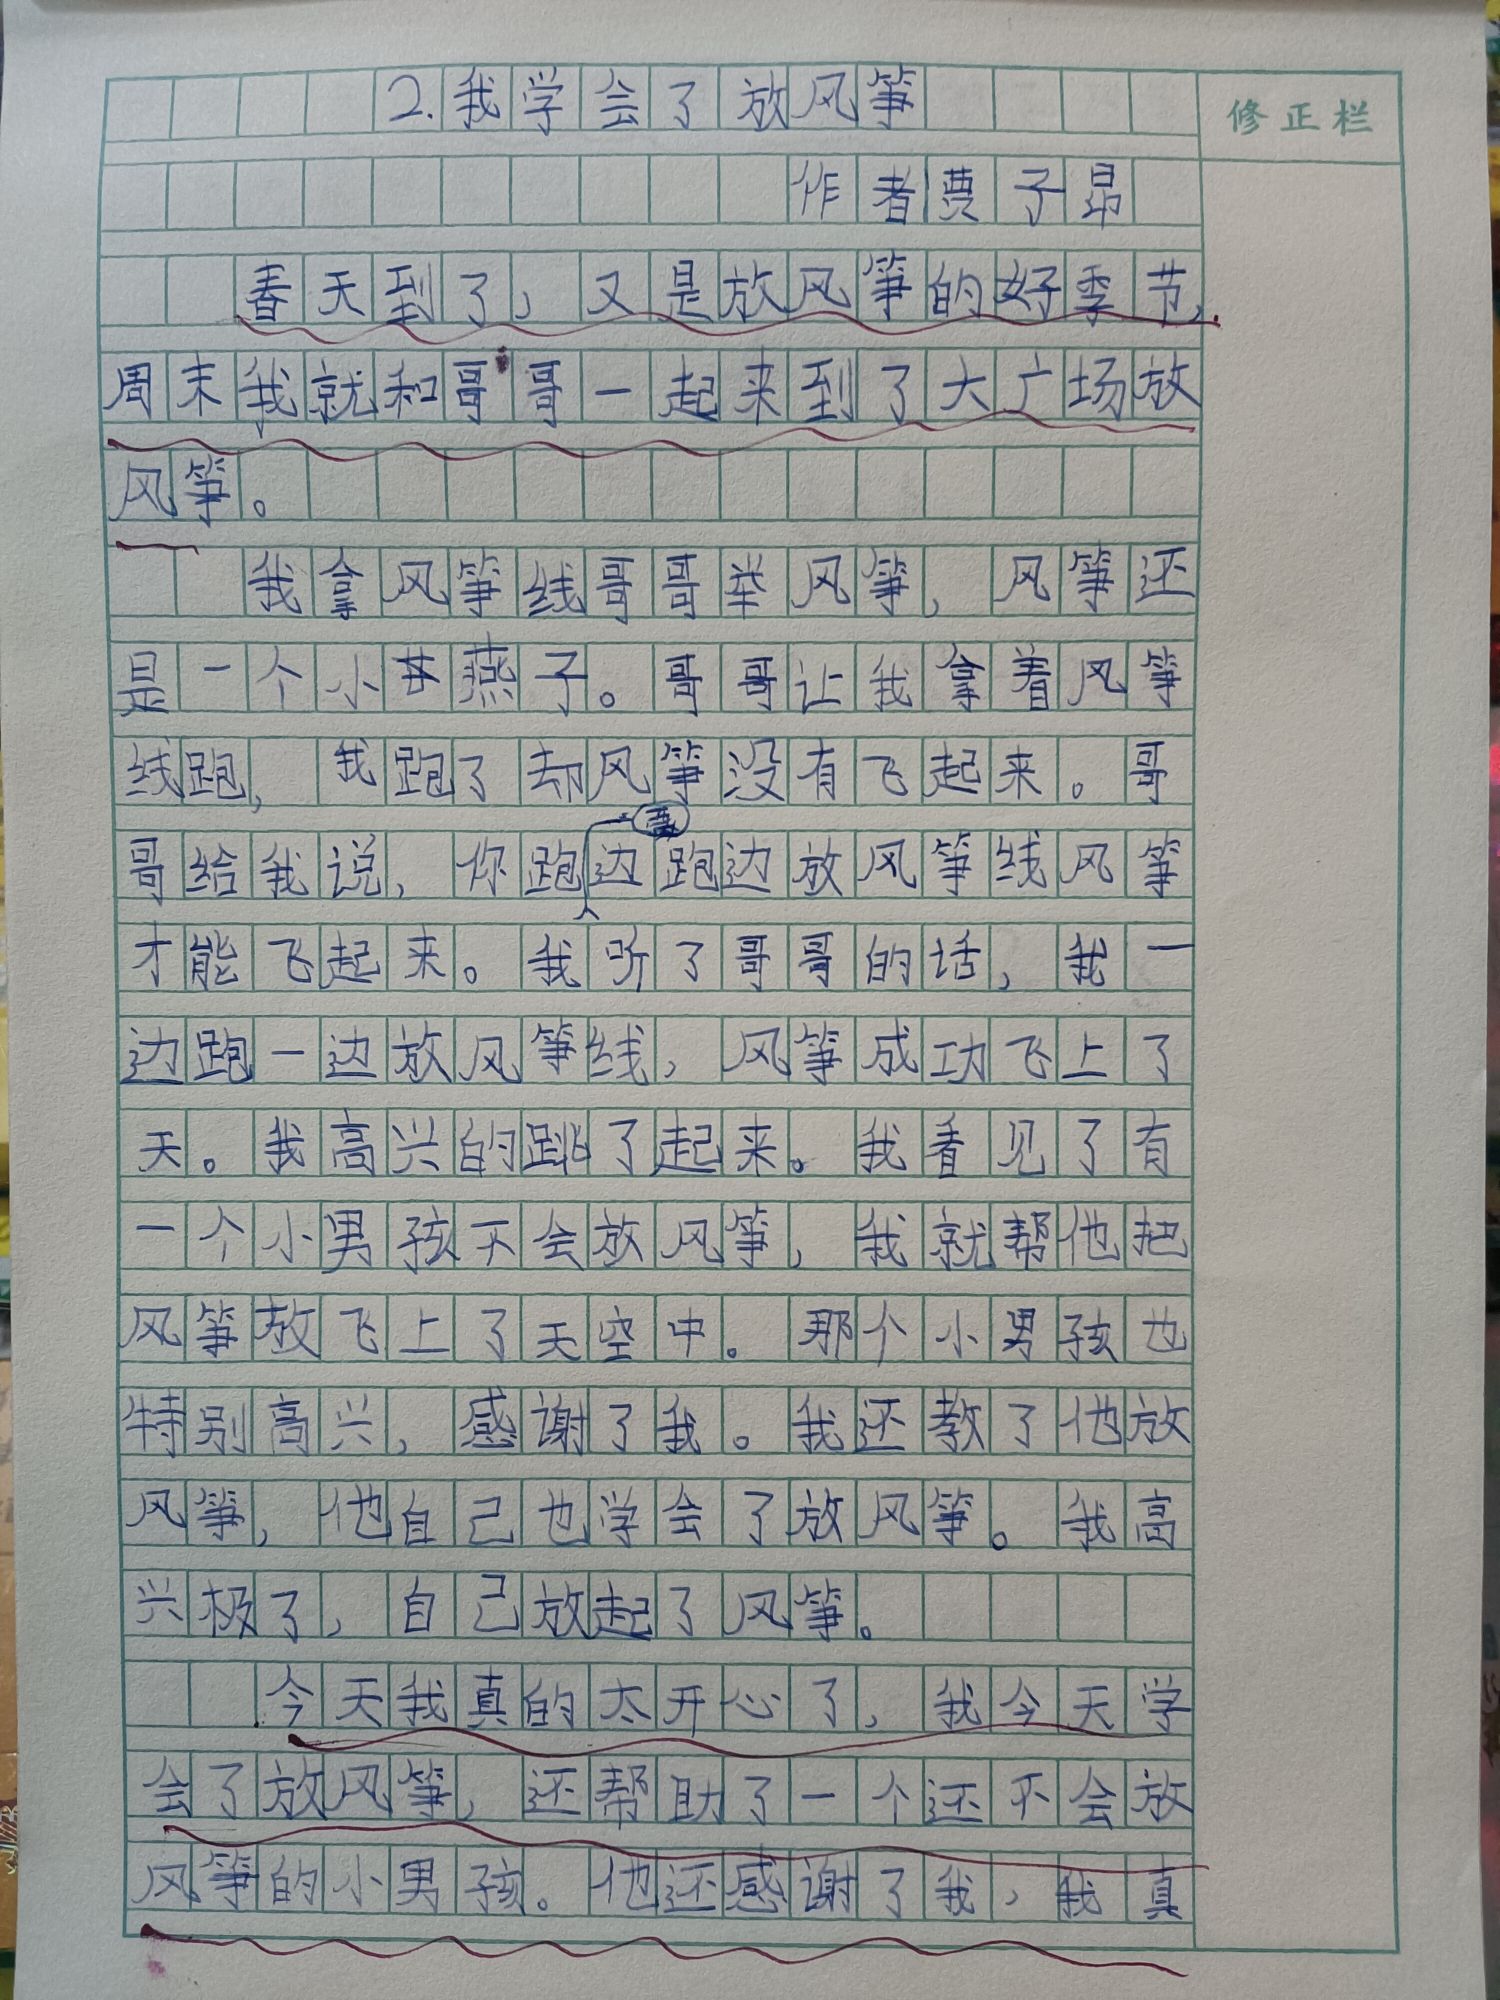 2.我学会了放风筝
修正栏
作者贾子昂
春天到了，又是放风筝的好季节，
周末我就和哥哥一起来到了大广场放
风筝。
我拿风筝线哥哥举风筝，风筝还
是一个小燕子。哥哥让我拿着风筝
线跑，我跑了却风筝没有飞起来。哥
哥给我说，你跑边跑边放风筝线风筝
才能飞起来。我听了哥哥的话，我一
边跑一边放风筝线，风筝成功飞上了
天。我高兴的跳了起来。我看见了有
一个小男孩不会放风筝，我就帮他把
风筝放飞上了天空中。那个小男孩也
特别高兴，感谢了我。我还教了他放
风筝，他自己也学会了放风筝。我高
兴极了，自己放起了风筝。
今天我真的太开心了，我今天学
会了放风筝，还帮助了一个还不会放
风筝的小男孩。他还感谢了我，我真